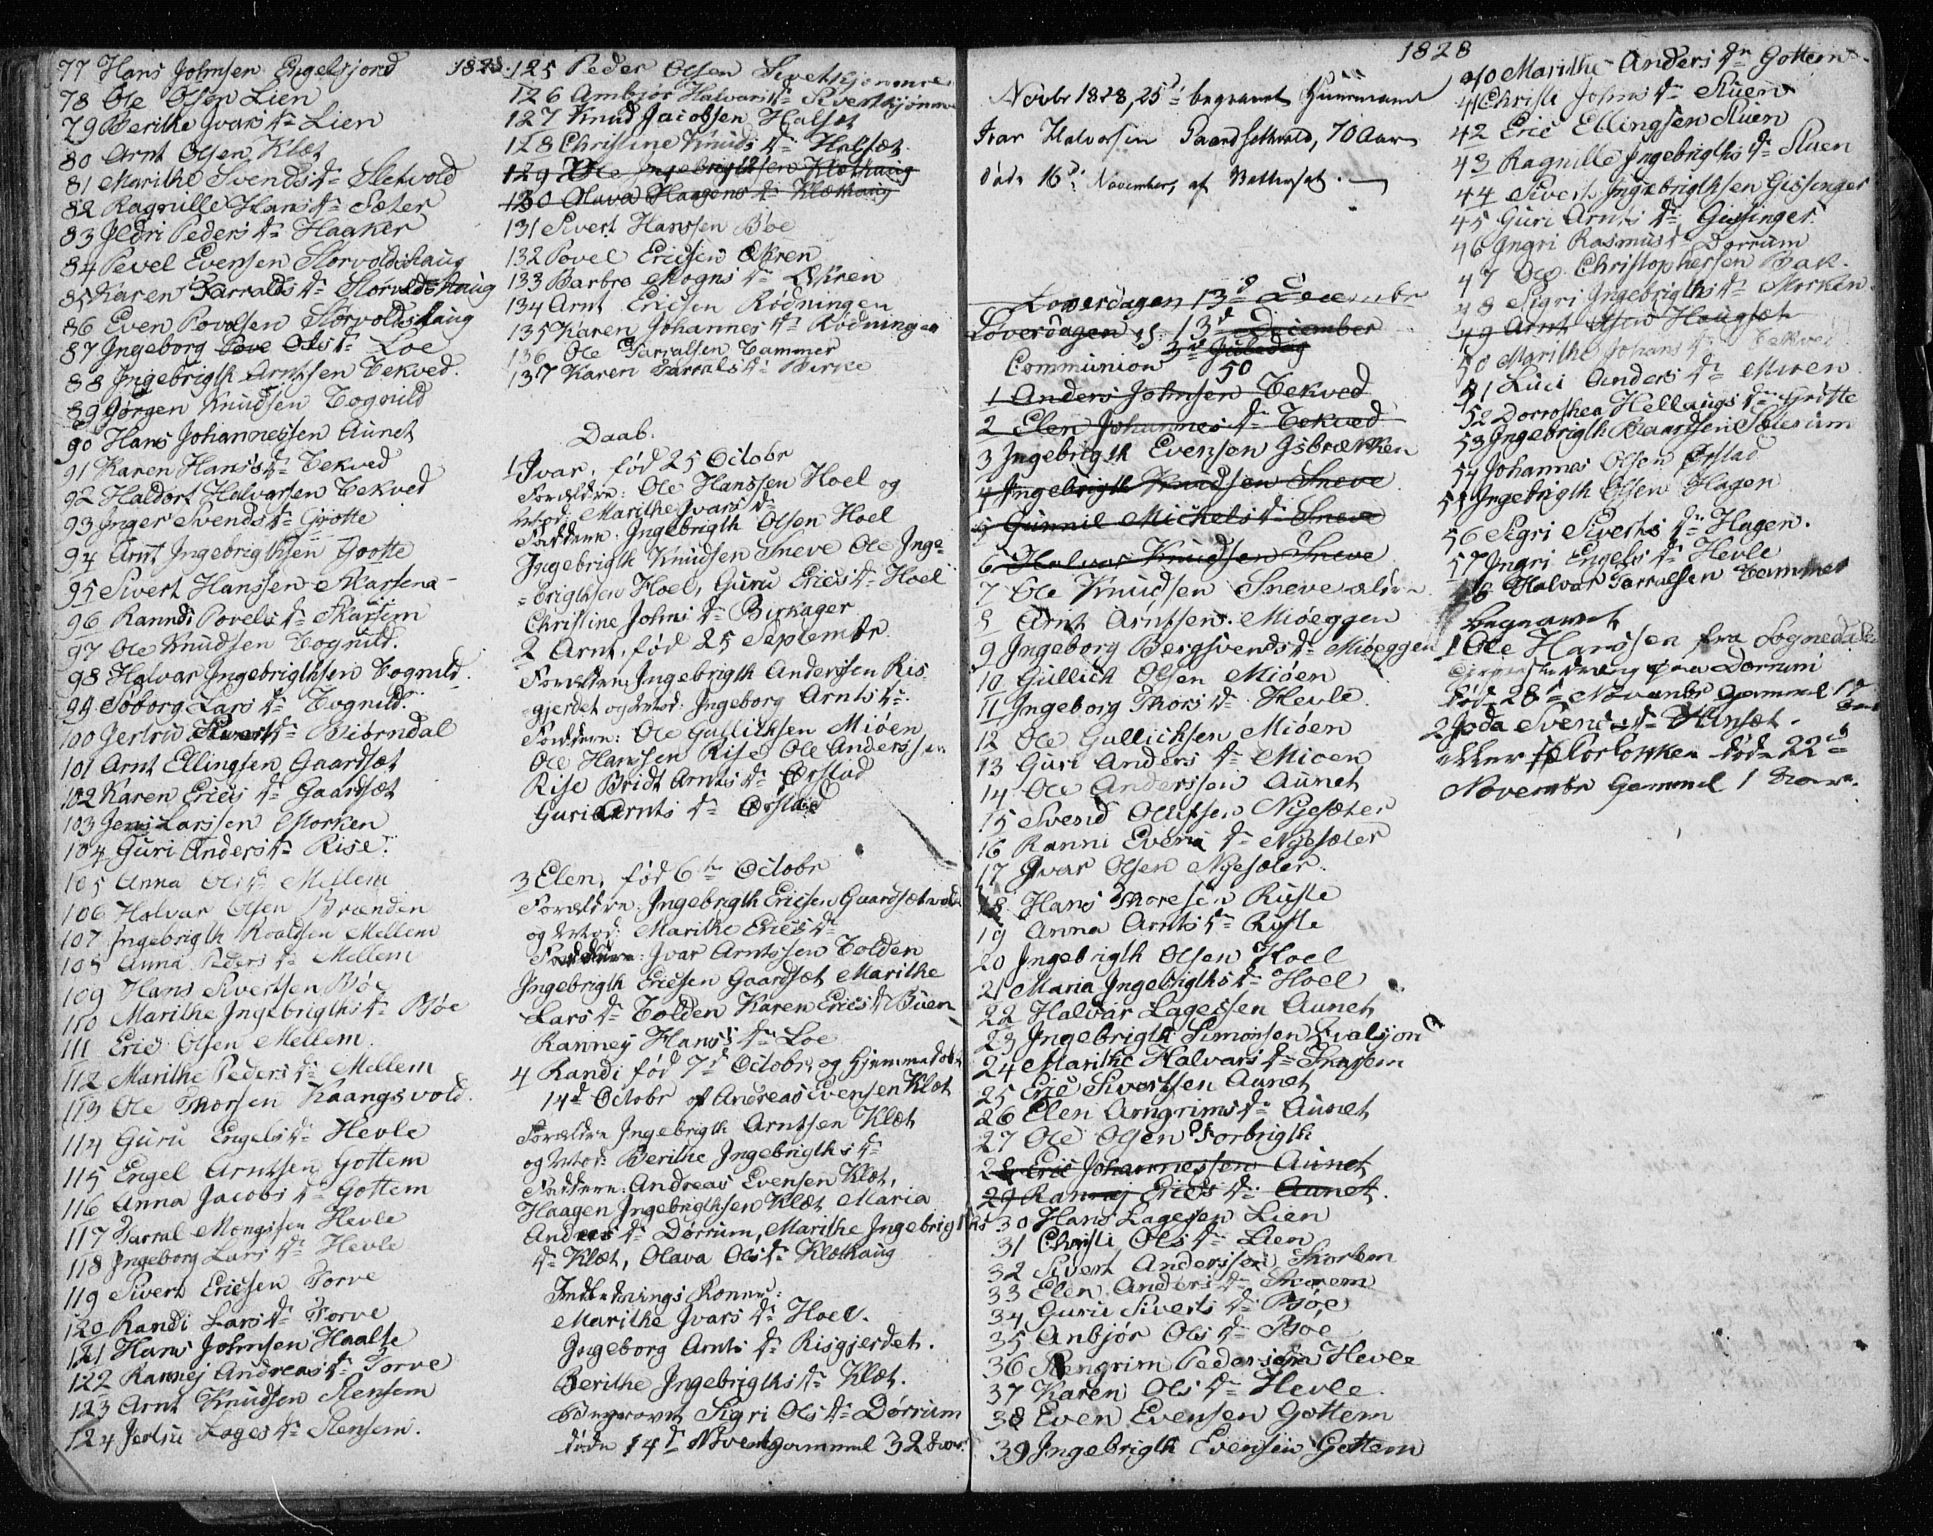 77 Hans Johnsen Engelsjord 1828.
78 Ole Olsen Lien
79 Berithe Jvars Dr Lien
80 Arnt Olsen Klæt
81 Marithe Svends Dr Sletvold
82 Ragnille Hans Dr Sæter
83 Jldri Peders Dr Haaker
84 Povel Evensen Storvoldshaug
85 Karen Tarralds Dr Storvoldshaug
86 Even Povelsen Storvoldshaug
87 Ingeborg Ols Dr Loe
88 Jngebrigth Arntsen Tekved.
89 Jørgen Knudsen Tognild
90 Hans Johannessen Aunet
91 Karen Hans Dr Tekved
92 Haldort Halvarsen Tekved
93 Jnger Svends Dr Grøtte
94 Arnt Jngebrigthsen Grøtte
95 Sivert Hanssen
96 Randi Povels Dr Skartem
97 Ole Knudsen Tognild.
98 Halvar Jngebrigthsen Tognild.
99 Søborg Lars Dr Tognild.
100 Gertru Siverts Dr Biørndal
101 Arnt Ellingsen Gaardsæt
102 Karen Erics Dr Gaardsæt
103 Jens Larssen Morken
104 Guri Anders Dr Rise.
105 Anna Ols Dr Mellem
106 Halvar Olsen Brænden
107 Jngebrigth Roaldsen Mellem
108 Anna Peders Dr Mellem
109 Hans Sivertsen Bøe
110 Marithe Jngebrigths Dr Bøe
111 Eric Olsen Mellem.
112 Marithe Peders Dr Mellem
113 Ole Thorsen Kaangsvold.
114 Guru Engels Dr Hevle
115 Engel Arntsen Gottem
116 Anna Jacobs Dr Gottem
117 Tarral Mongssen Hevle
118 Jngeborg Lars Dr Hevle
119 Sivert Ericsen Torve
120 Randi Lars Dr Torve
121 Hans Johnsen Haalte
122 Rannej Andreas Dr Torve
123 Arnt Knudsen Stensem
124 Jertru Lages Dr Stensem.
125 Peder Olsen Sivetskjønme
126 Ambjør Halvars Dr Sivertskjønme
127 Knud Jacobsen Halsæt
128 Christine Knuds Dr Halsæt.
129 Ole Jngebrigthsen Klæthaug
130 Olava Haagens Dr Klæthaug
131 Sivert Hanssen Bøe
132 Povel Ericsen Økren
133 Barbro Mogns Dr Økren
134 Arnt Ericsen Rødningen
135 Karen Johannes Dr Rødningen
136 Ole Tarralsen Tammer
137 Karen Tarrals Dr Birke
Daab.
1 Jvar, fød 25 Octobr
Forældre: Ole Hanssen Hoel og
Mod. Marithe Jvars Dr
Faddere: Jngebrigth Olsen Hoel
Jngebrigth Knudsen Sneve Ole Jnge=
=brigthsen Hoel, Guru Erics Dr Hoel
Christine Johns Dr Birkager
2 Arnt, fød 25 September
Forældre Jngebrigth Anderssen Ris-
gjerdet og Mod. Jngeborg Arnts Dr
Faddere: Ole Gullichsen Miøen
Ole Hanssen Rise Ole Anderssen
Rise Bridt Arnts Dr Ørstad
Guri Arnts Dr Ørstad
3 Elen, fød 6te Octobr
Forældre: Jngebrigth Ericsen Gaardsætvold
og Mod: Marithe Erics Dr
Faddere: Jvar Arntssen Tolden
Jngebrigth Ericsen Gaardsæt Marithe
Lars Dr Tolden Karen Erics Dr Buen
Rannej Hans Dr Loe
4 Randi fød 7d Octobr, og hjemmedøbt
14d Octobr af Andreas Evensen Klæt
Forældre Jngebrigth Arntsen Klæt
og Mod: Berithe Jngebrigths Dr
Faddere: Andreas Evensen Klæt,
Haagen Jngebrigthsen Klæt Maria
Andreas Dr Dørrum, Marithe Jngebrigths
Dr Klæt, Olava Ols Dr Klæthaug
Jndlednings Koner:
Marithe Jvars Dr Hoel.
Jngeborg Arnts Dr Risgjerdet.
Berithe Jngebrigths Dr Klæt.
Begravet Sigri Ols Dr Dørrum
døde 14d Novembr gammel 32 Aar.
1828
Novbr 1828, 25d begravet Huusmand
Ivar Halvorsen Gaardsetvold, 70 Aar
døde 16d November, af
Løverdagen 13d December
Løverdagen d. 13d December
3d Juledag
Communion 50
1 Anders Johnsen Tekved
2 Elen Johannes Dr Tekved
3 Jngebrigth Evensen Jsbrækken
4 Jngebrigth Knudsen Sneve
5 Gunnil Michels Dr Sneve
6 Halvar Knudsen Sneve
7 Ole Knudsen Sneve
8 Arnt Arntsen Miøeggen
9 Jngeborg Bergsvends Dr Miøeggen
10 Gullich Olsen Miøen
11 Jngeborg Thors Dr Hevle
12 Ole Gullichsen Miøen
13 Guri Anders Dr Miøen
14 Ole Anderssen Aunet
15 Svend Olufsen Nyesæter
16 Ranni Evens Dr Nyesæter
17 Jvar Olsen Nyesæter.
18 Hans Thoresen Riste
19 Anna Arnts Dr Riste
20 Jngebrigth Olsen Hoel
21 Maria Jngebrigths Dr Hoel
22 Halvar Lagessen Aunet
23 Jngebrigth Simonsen
24 Marithe Halvars Dr
25 Eric Sivertsen Aunet
26 Elen Arngrims Dr Aunet
27 Ole Olsen Forbrigth
28 Eric Johannessen Aunet
29 Rannej Erics Dr Aunet.
30 Hans Lagesen Lien
31 Christi Ols Dr Lien
32 Sivert Anderssen
33 Elen Anders Dr
34 Guru Siverts Dr Bøe
35 Anbjør Ols Dr Bøe
36 Stengrim Pedersen Hevle
37 Karen Ols Dr Hevle.
38 Even Evensen Gottem
39 Jngebrigth Evensen Gottem
40 Marithe Anders Dr Gottem.
41 Christi Johns Dr Stuen
42 Eric Ellingsen Stuen
43 Ragnille Jngebrigths Dr Stuen
44 Sivert Jngebrigthsen Gissinger
45 Guri Arnts Dr Gissinger
46 Jngri Rasmus Dr Dørrum
47 Ole Christophersen Bak.
48 Sigri Jngebrigths Dr Morken.
49 Arnt Olsen Haugsæt
50 Marithe Johans Dr Tekved
51 Luci Anders Dr Muren.
52 Dorrothea Hellaugs Dr Grøtte
53 Jngebrigth Baardsen
54 Johannes Olsen Ørstad
55 Jngebrigth Olsen Hagen
56 Sigri Siverts Dr Hagen.
57 Jngri Engels Dr Hevle
58 Halvar Tarralsen Tammer
Begravet
1 Ole Hanssen fra Sognedalen
paa Dørrum
døde 28d Novembr gammel 17 Aar
2 Joda Svends Dr Hinsæt.
eller døde 22d
Novembr Gammel 1 Aar.